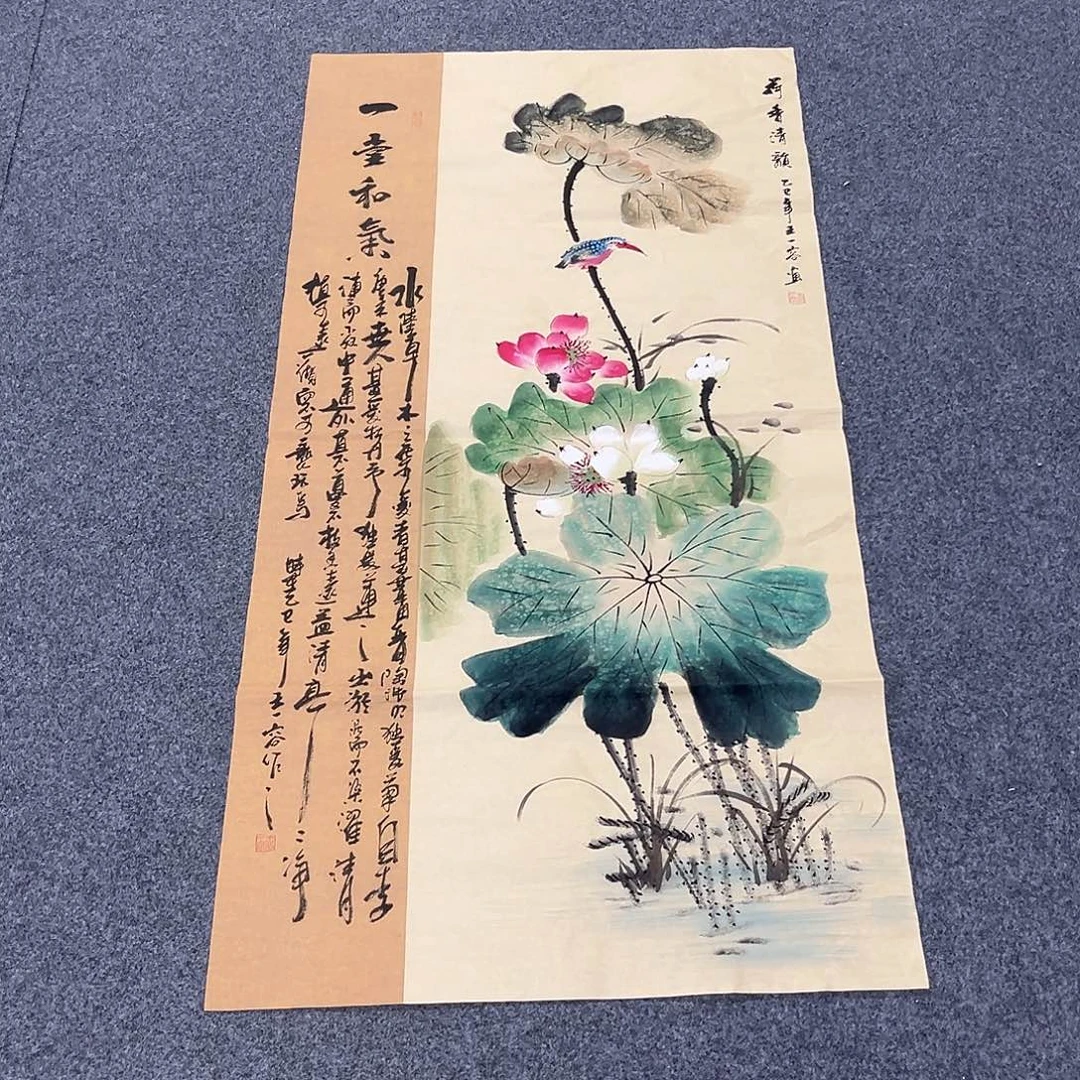 荷香清韻 乙巳年王一容畫
一堂和氣
水陸草木之花可愛者甚蕃自晉陶淵明獨愛菊自李
唐來世人甚愛牡丹予獨愛蓮之出淤泥而不染濯清
漣而不妖中通外直不枝香遠益清亭亭淨
植可遠觀不可褻玩焉 時在乙巳年王一容作之